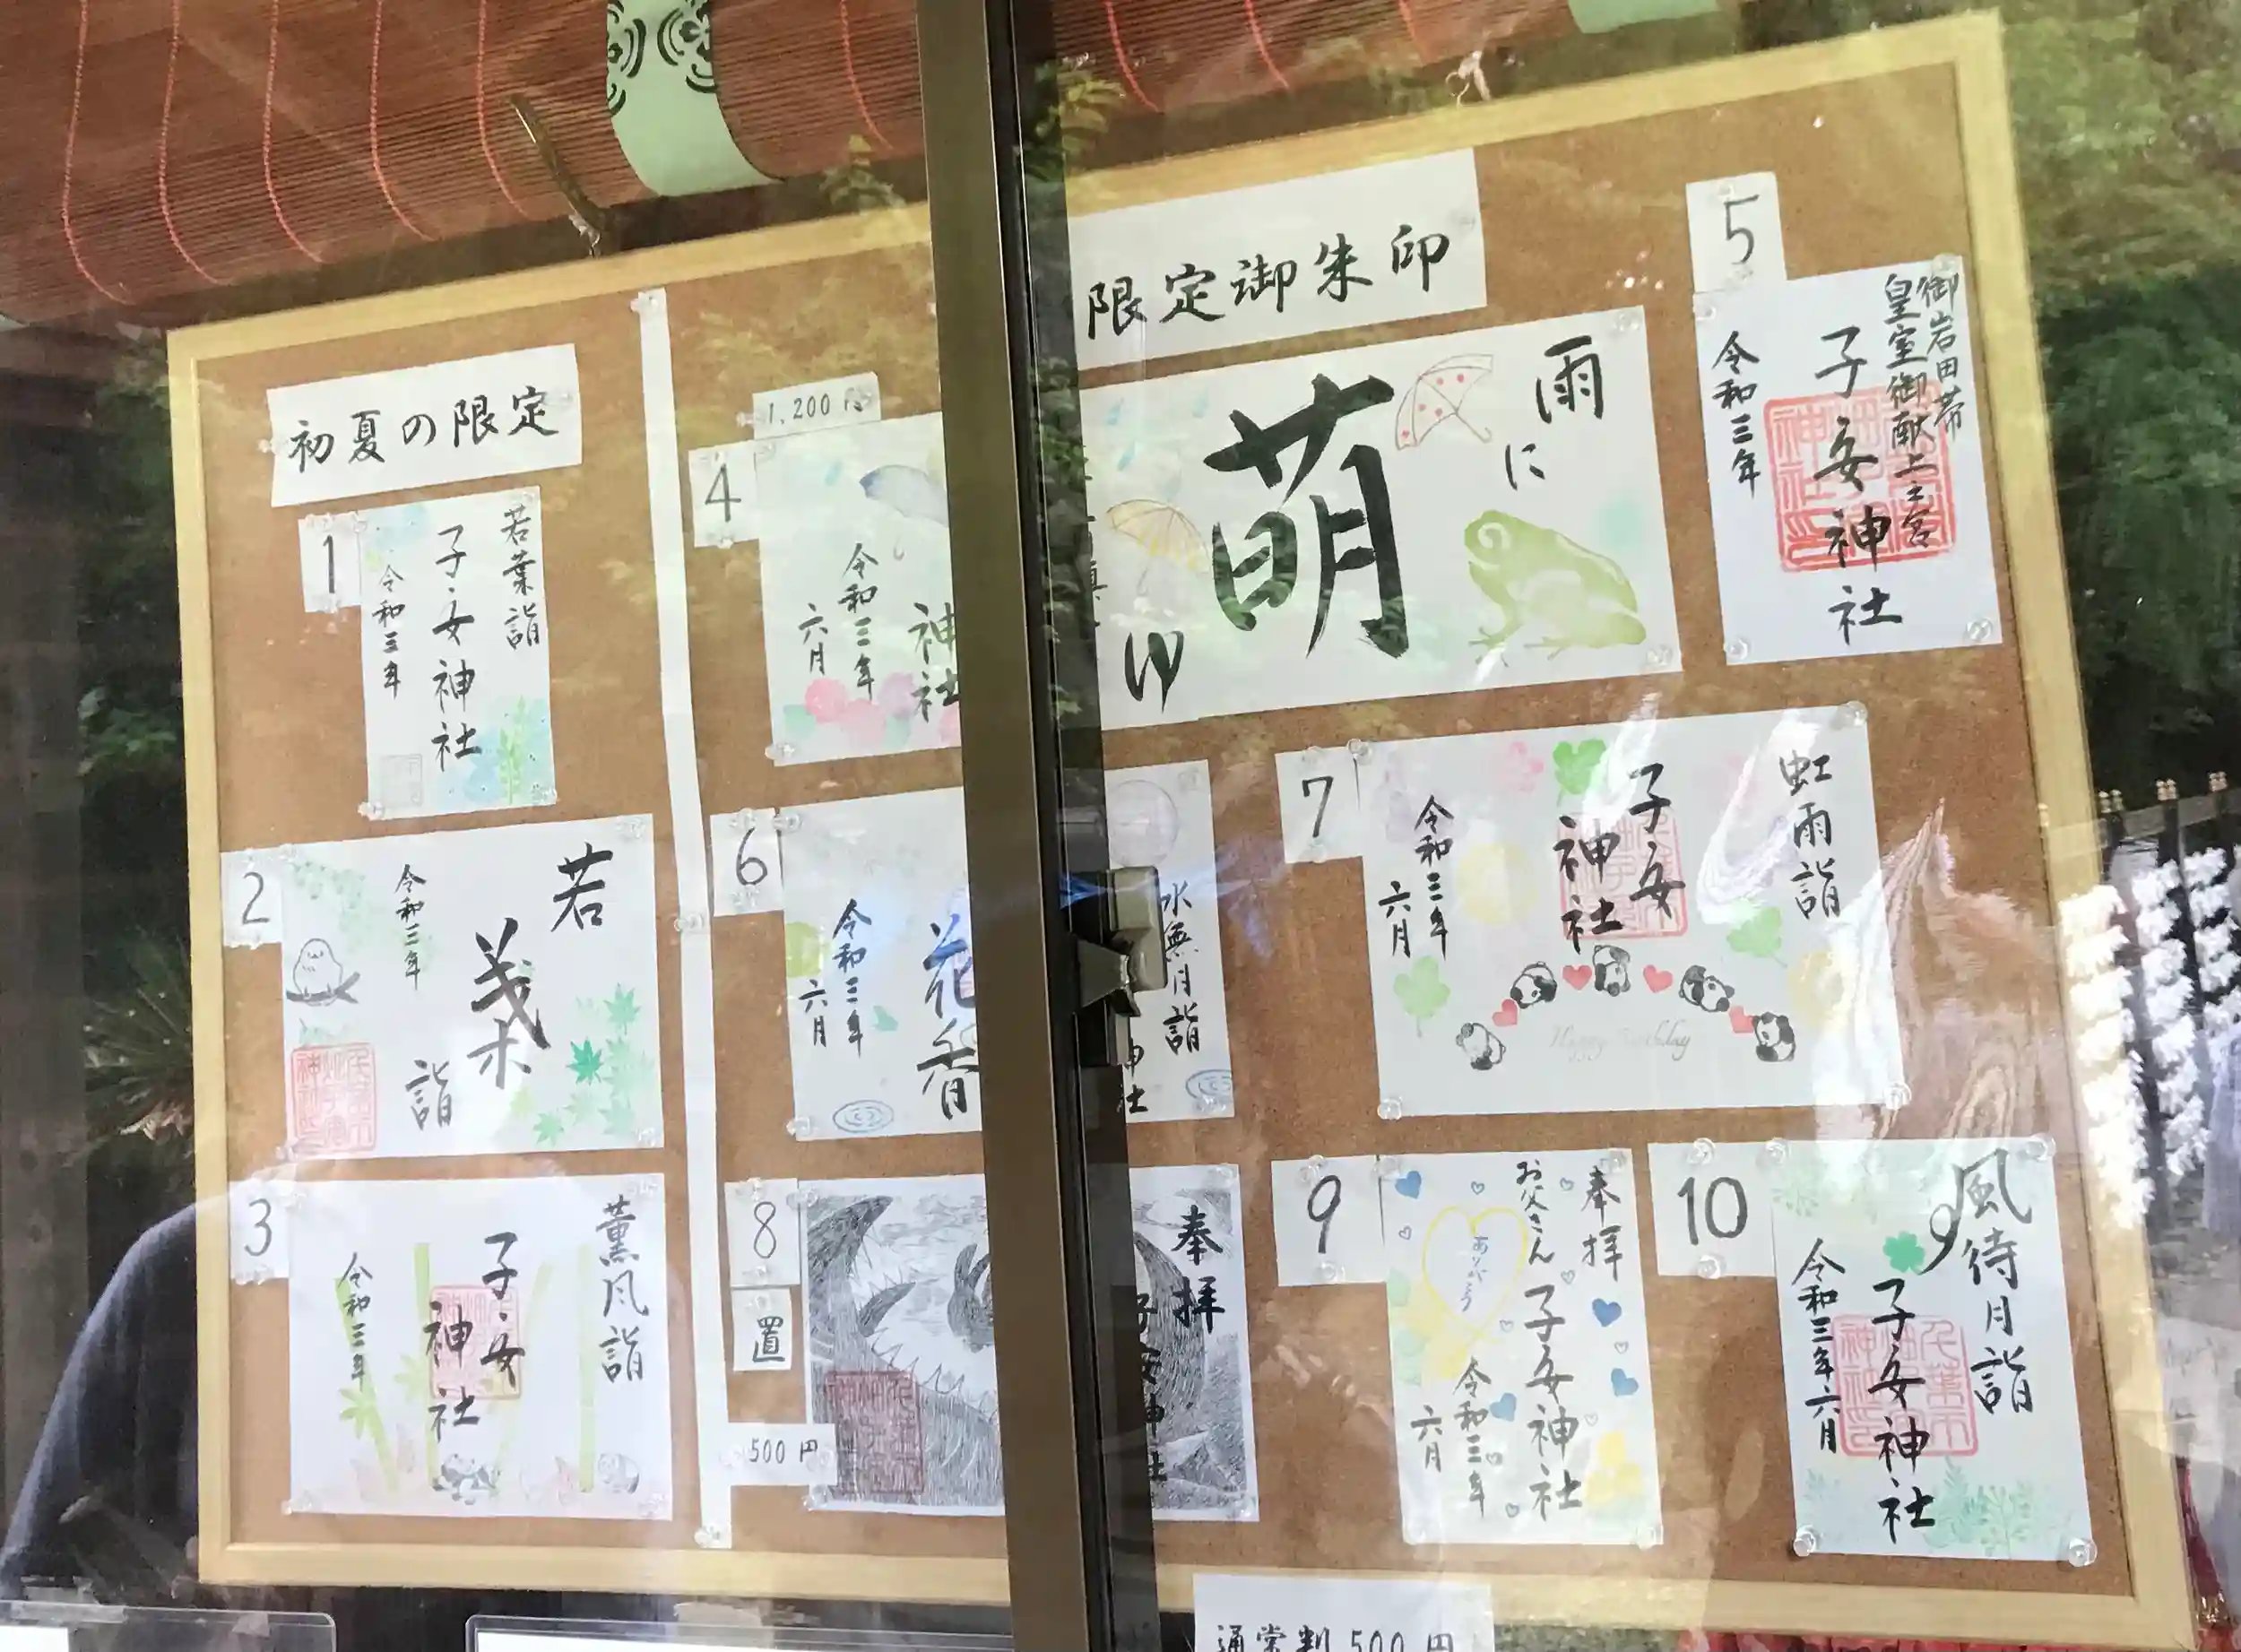 限定御朱印
初夏の限定
1
若葉詣
子安神社
令和三年
2
若
葉
詣
令和三年
3
薫風詣
子安
神社
令和三年
1,200円
4
雨
に
萌
ゆ
神社
令和三年
六月
5
御岩田帯
皇室御献上之宮
子安神社
令和三年
6
水無月詣
花
香
令和三年
六月
7
虹雨詣
子安
神社
令和三年
六月
Happy Birthday
8
置
500円
奉拝
子安神社
9
奉拝
お父さん
ありがとう
子安神社
令和三年
六月
10
風待月詣
子安神社
令和三年六月
通常判 500円